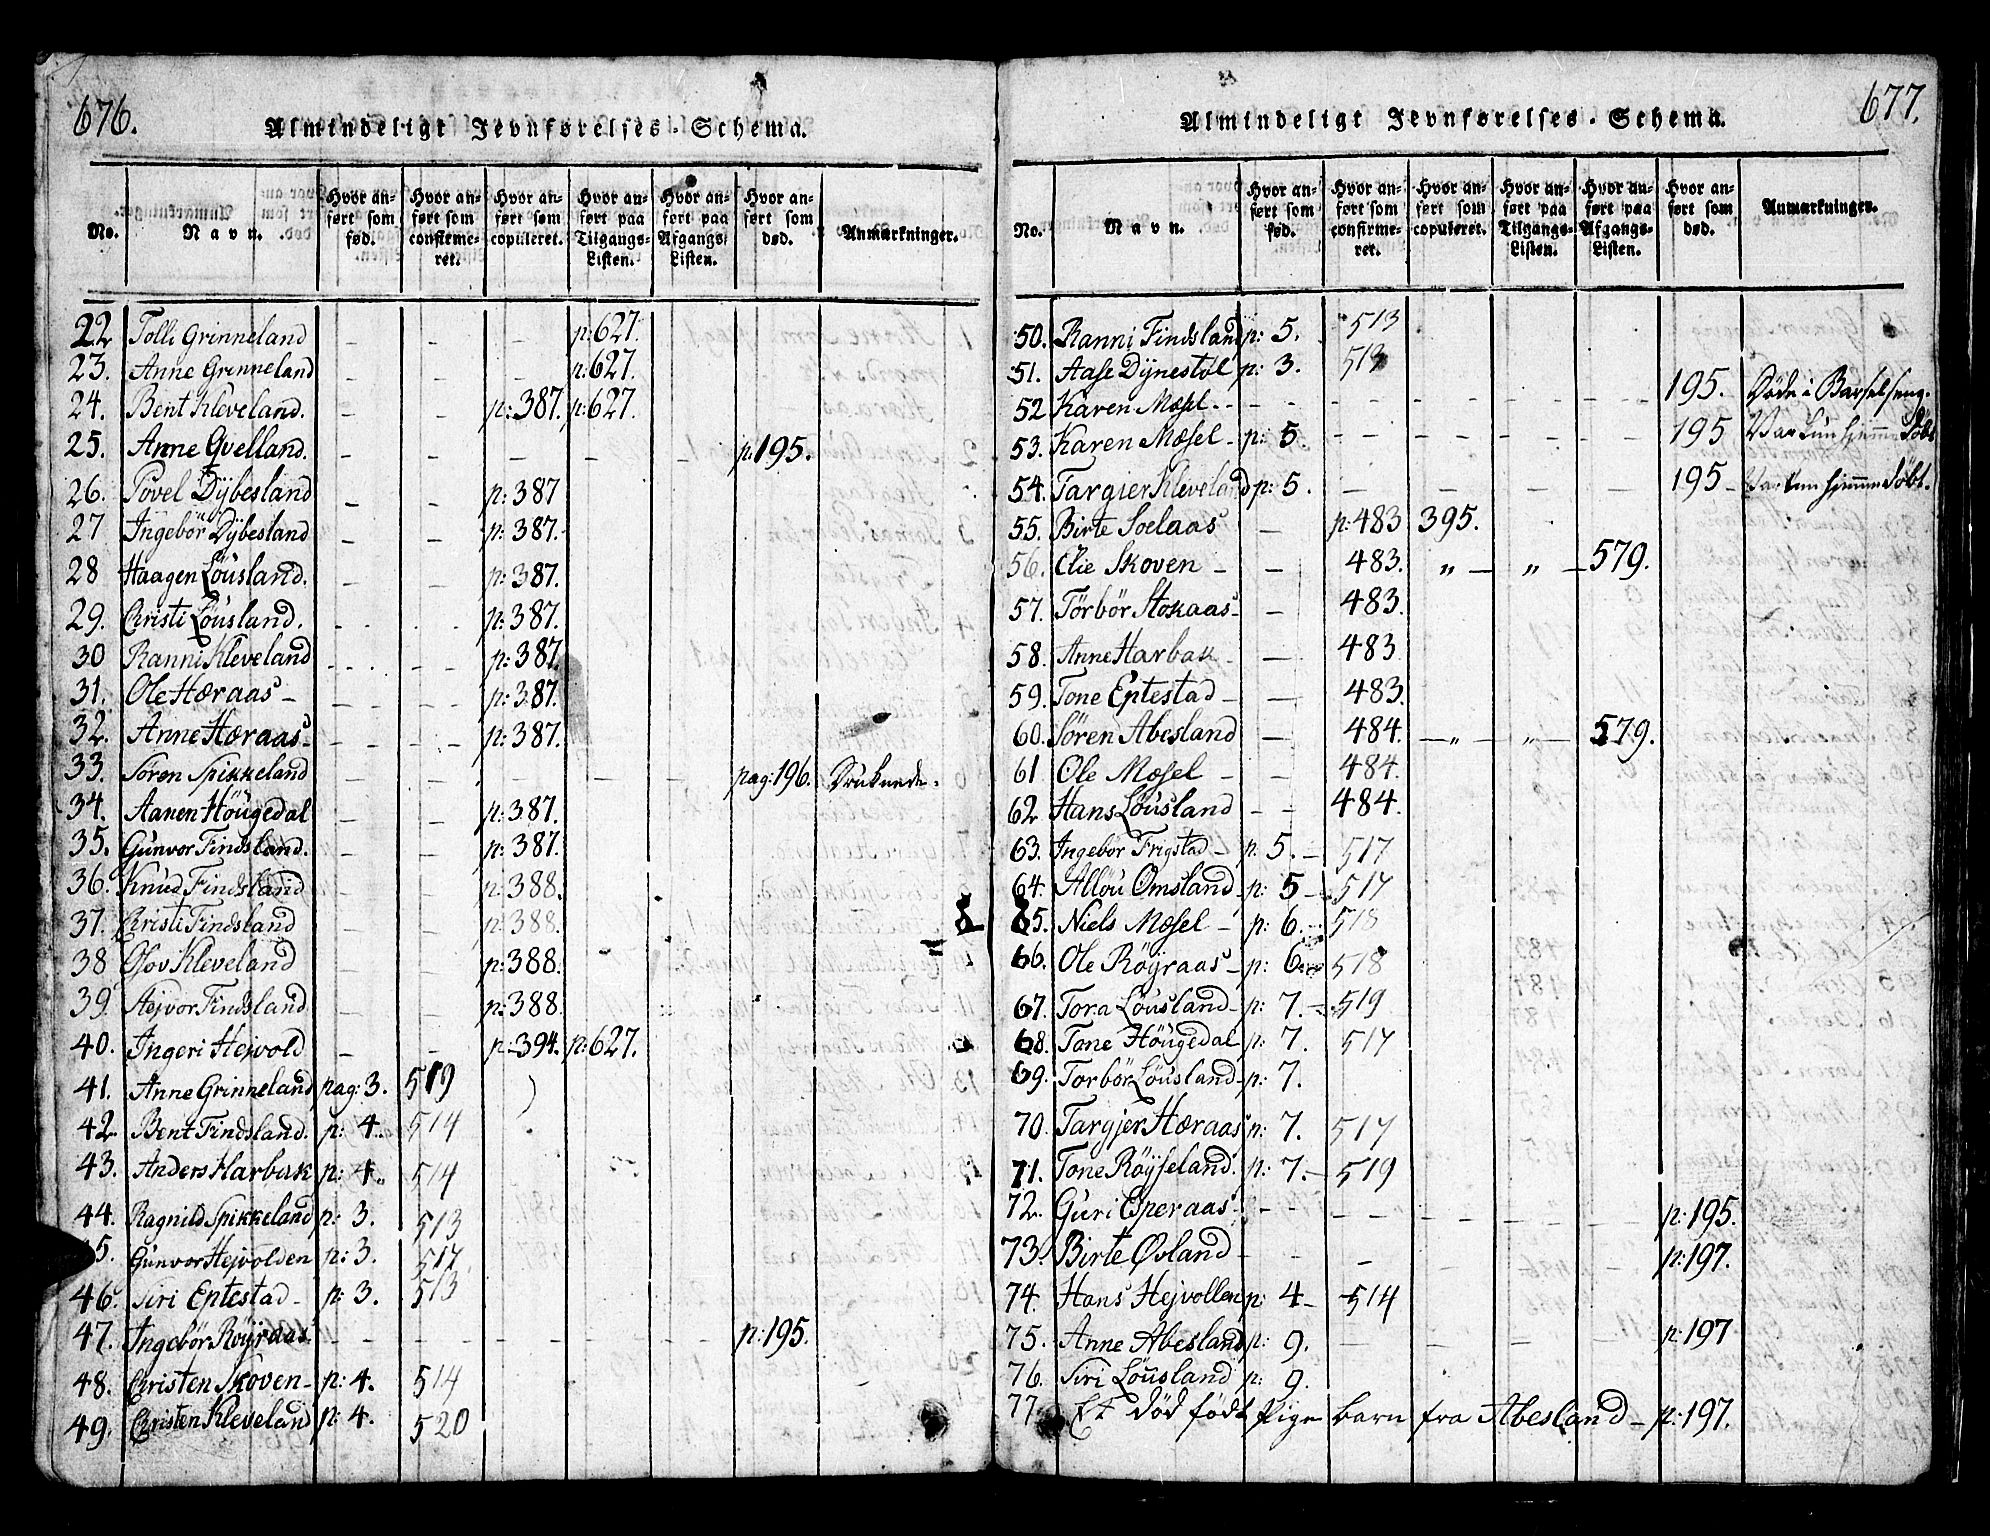 676.
Almindeligt Jevnførelses-Schema.
No. | Navn. | Hvor anført som fød. | Hvor anført som confirmeret. | Hvor anført som copuleret. | Hvor anført paa Tilgangs-Listen. | Hvor anført paa Afgangs-Listen. | Hvor anført som død. | Anmærkninger.
22 Tolli Grinneland - - - p: 627.
23. Anne Grinneland - - - p: 627.
24. Bent Kleveland. - - p: 387. p: 627.
25. Anne Qvelland. - - - - - p: 195.
26. Povel Dÿbesland - - p: 387
27 Ingebör Dÿbesland - - p: 387.
28 Haagen Löusland. - - p: 387.
29. Christi Löusland. - - p: 387.
30 Ranni Kleveland - - p: 387.
31. Ole Hæraas - - - p: 387.
32. Anne Hæraas - - - p: 387.
33. Sören Spikkeland - - - - - pag: 196. Druknede.
34. Aanen Höugedal - - p: 387.
35. Gunvor Findsland. - - p: 387.
36. Knud Findsland - - p: 388.
37. Christi Findsland - - p: 388.
38 Osov Kleveland - - p: 388.
39. Aejvor Findsland - - p: 388.
40. Ingeri Hejvold - - p: 394. p: 627.
41. Anne Grinneland pag: 3. 519
42. Bent Findsland. p: 4. 514
43. Anders Harbak p: 4. 514
44. Ragnild Spikkeland p: 3. 513
45. Gunvor Hejvolden p: 3. 517
46. Siri Eptestad - p: 3. 513
47. Ingebör Röÿraas - - - - - p: 195.
48. Christen Skoven - p: 4. 514
49. Christen Kleveland p: 4. 520
677.
Almindeligt Jevnførelses-Schema.
No. | Navn. | Hvor anført som fød. | Hvor anført som confirmeret. | Hvor anført som copuleret. | Hvor anført paa Tilgangs-Listen. | Hvor anført paa Afgangs-Listen. | Hvor anført som død. | Anmærkninger.
50. Ranni Findsland p: 5. 513
51. Aase Dÿnestöl p: 3. 513
52 Karen Mæsel - - - - - - 195. Døde i Barselseng.
53. Karen Mæsel - p: 5 - - - - 195 Var kun hjemme Døbt
54. Targjer Kleveland p: 5. - - - - 195 - Var kun hjemme Døbt.
55. Birte Soelaas - p: 483 395.
56. Elie Skoven - - 483. " - " - 579.
57. Törbör Stokaas - - 483.
58. Anne Harbak - - 483
59. Tone Eptestad - - 483.
60. Sören Abesland - 484. - " - " - 579.
61 Ole Mæsel - - 484.
62 Hans Löusland - - 484.
63. Ingebor Frigstad - p: 5. - 517
64. Allöu Omsland - p: 5 - 517
65. Niels Mæsel - p: 6. - 518
66. Ole Röÿraas - p: 6. 518
67. Tora Löusland - p: 7. - 519
68. Tone Höugedal p: 7. 517
69. Torbör Löusland - p: 7.
70. Targjer Hæraas p: 7. 517
71. Tone Röÿseland. p: 7. - 519
72. Guri Eperaas - - - - - - p: 195.
73. Birte Øvland - - - - - - p: 197.
74. Hans Hejvollen p: 4 - 514
75. Anne Abesland p: 9. - - - - p: 197
76. Siri Löusland p: 9.
77. Et död födt Pige barn fra Abesland - p: 197.